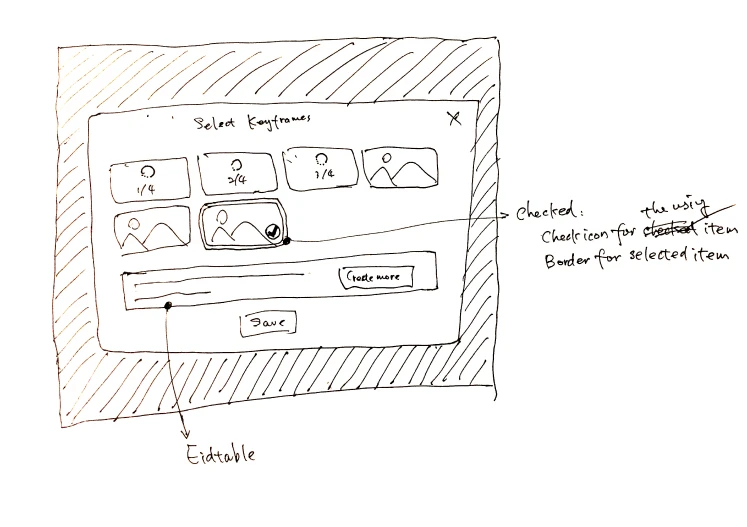 Select Keyframes
X
1/4
2/4
3/4
Create more
Save
Checked:
Check icon for the using item
Border for selected item
Eidtable